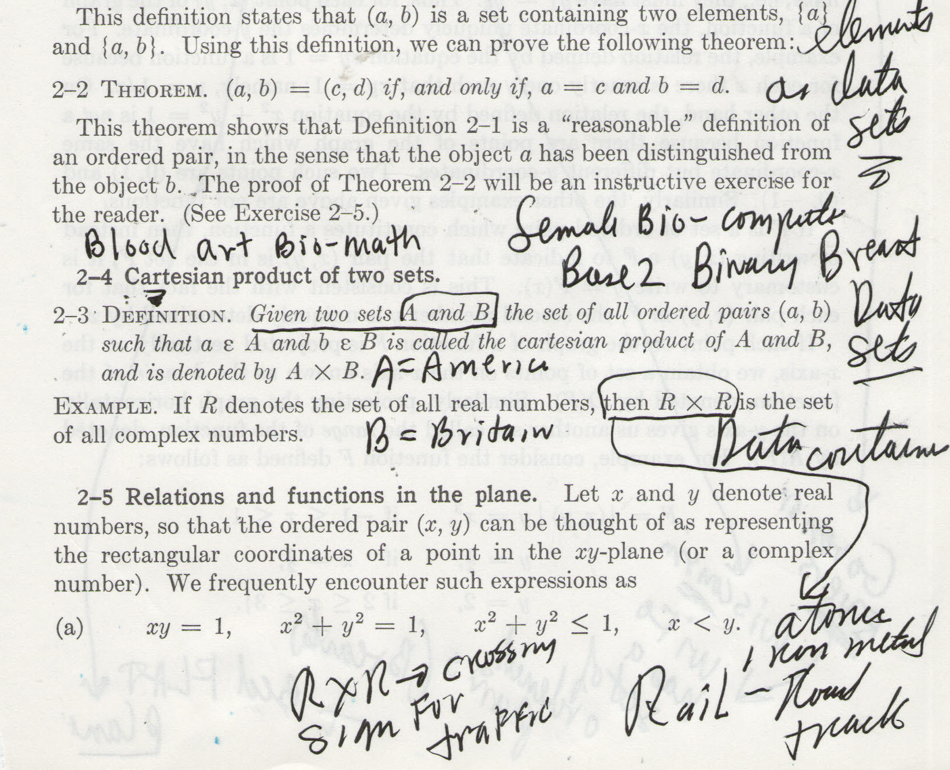 This definition states that (a, b) is a set containing two elements, {a}
and {a, b}. Using this definition, we can prove the following theorem:
elements
as data
sets
2–2 THEOREM. (a, b) = (c, d) if, and only if, a = c and b = d.
This theorem shows that Definition 2–1 is a “reasonable” definition of
an ordered pair, in the sense that the object a has been distinguished from
the object b. The proof of Theorem 2–2 will be an instructive exercise for
the reader. (See Exercise 2–5.)
Female Bio-computer
Base 2 Binary Breast
Data
sets
Blood art Bio-math
2–4 Cartesian product of two sets.
2–3 DEFINITION. Given two sets A and B, the set of all ordered pairs (a, b)
such that a ε A and b ε B is called the cartesian product of A and B,
and is denoted by A × B.
A = America
EXAMPLE. If R denotes the set of all real numbers, then R × R is the set
of all complex numbers.
B = Britain
Data container
2–5 Relations and functions in the plane. Let x and y denote real
numbers, so that the ordered pair (x, y) can be thought of as representing
the rectangular coordinates of a point in the xy-plane (or a complex
number). We frequently encounter such expressions as
(a) xy = 1, x² + y² = 1, x² + y² ≤ 1, x < y.
atomic
iron metal
RxR → crossing
sign for
traffic
Rail – Road
track